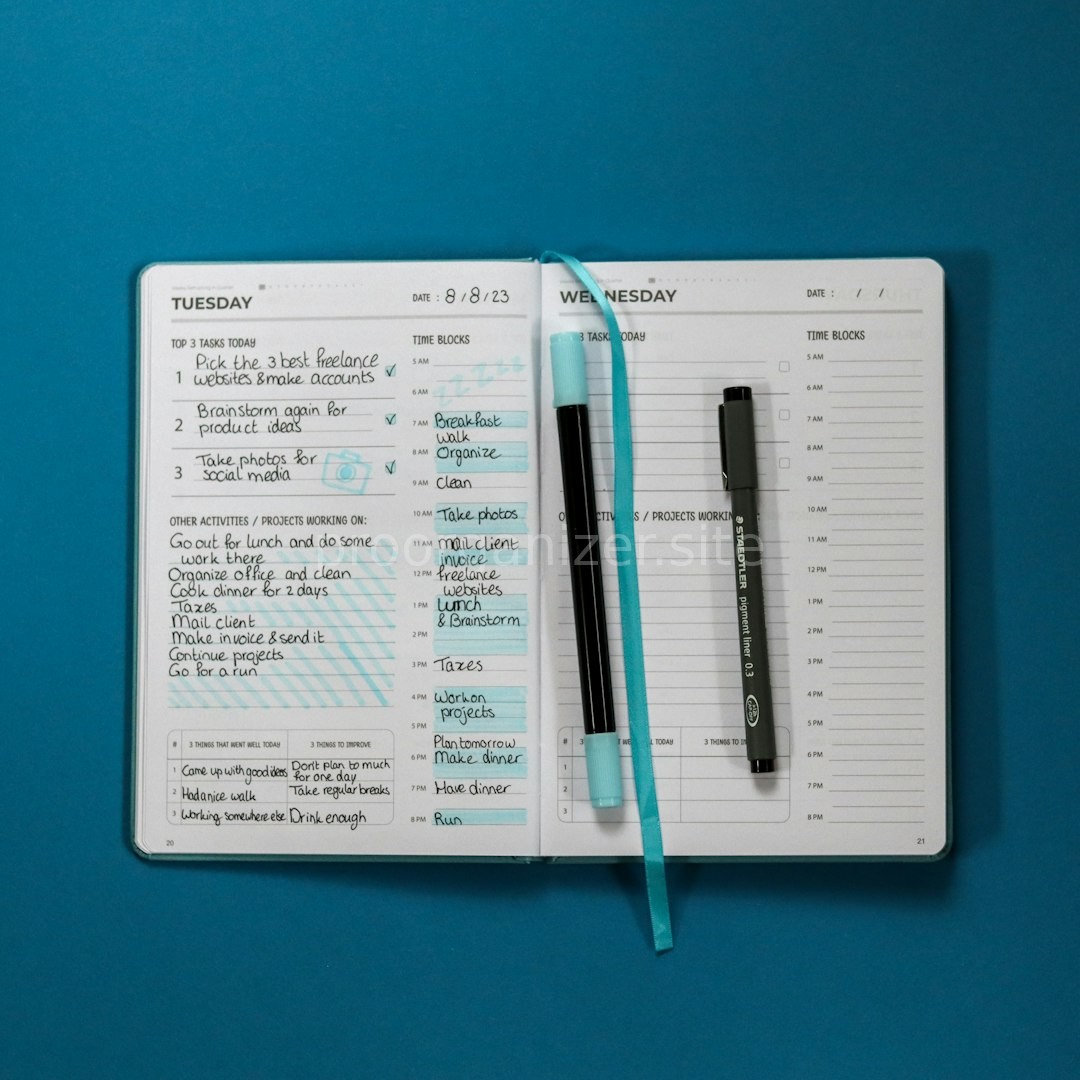 TUESDAY
DATE : 8/8/23
TOP 3 TASKS TODAY
1 Pick the 3 best freelance
websites & make accounts
2 Brainstorm again for
product ideas
3 Take photos for
social media
OTHER ACTIVITIES / PROJECTS WORKING ON:
Go out for lunch and do some
work there
Organize office and clean
Cook dinner for 2 days
Taxes
Mail client
Make invoice & send it
Continue projects
Go for a run
# 3 THINGS THAT WENT WELL TODAY 3 THINGS TO IMPROVE
1 Came up with good ideas Don't plan to much
for one day
2 Had a nice walk Take regular breaks
3 Working somewhere else Drink enough
20
TIME BLOCKS
5 AM ZZZzzz
6 AM
7 AM Breakfast
walk
8 AM Organize
9 AM Clean
10 AM Take photos
11 AM mail client
invoice
12 PM freelance
websites
1 PM Lunch
& Brainstorm
2 PM
3 PM Taxes
4 PM Work on
projects
5 PM
Plan tomorrow
6 PM Make dinner
7 PM Have dinner
8 PM Run
WEDNESDAY
DATE : / /
3 TASKS TODAY
ACTIVITIES / PROJECTS WORKING
# 3 WELL TODAY 3 THINGS TO
1
2
3
TIME BLOCKS
5 AM
6 AM
7 AM
8 AM
9 AM
10 AM
11 AM
12 PM
1 PM
2 PM
3 PM
4 PM
5 PM
6 PM
7 PM
8 PM
21
STAEDTLER pigment liner 0.3